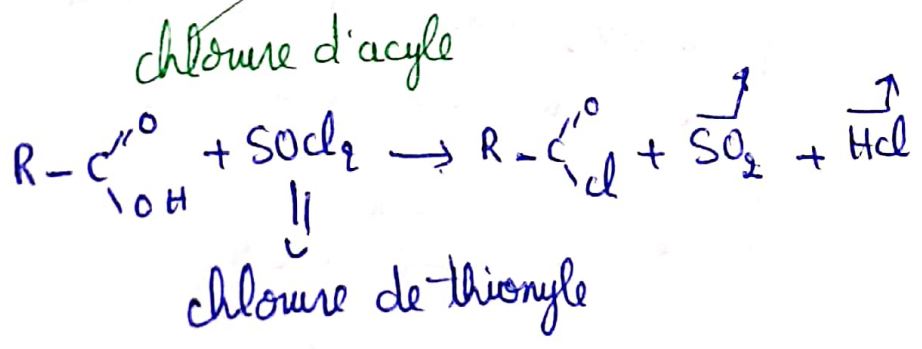 chlorure d'acyle
R-C(=O)OH + SOCl2 → R-C(=O)Cl + SO2↑ + HCl↑
⇓
chlorure de thionyle